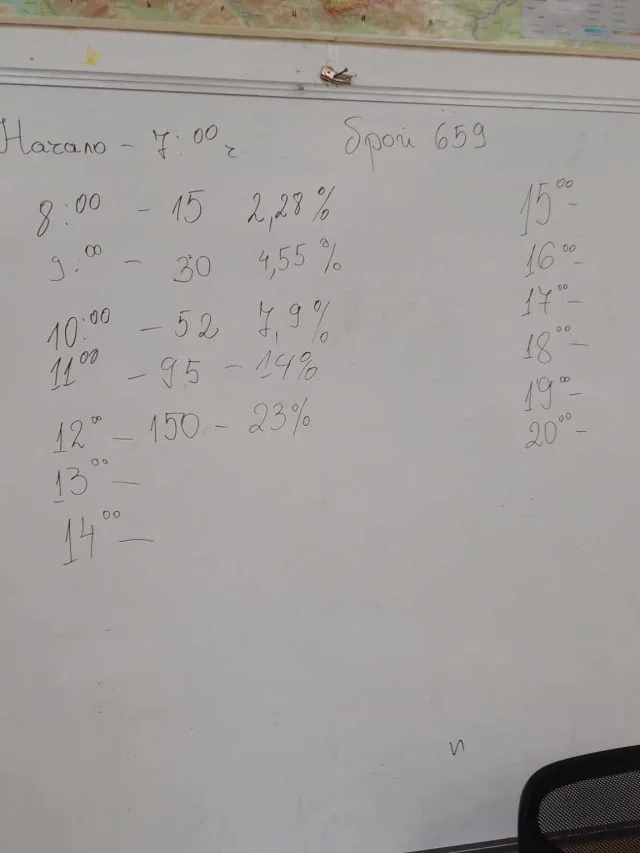 Начало - 7:00 ч.
Брой 659
8:00 - 15 2,28%
9:00 - 30 4,55%
10:00 - 52 7,9%
11 00 - 95 - 14%
12 00 - 150 - 23%
13 00 -
14 00 -
15 00 -
16 00 -
17 00 -
18 00 -
19 00 -
20 00 -